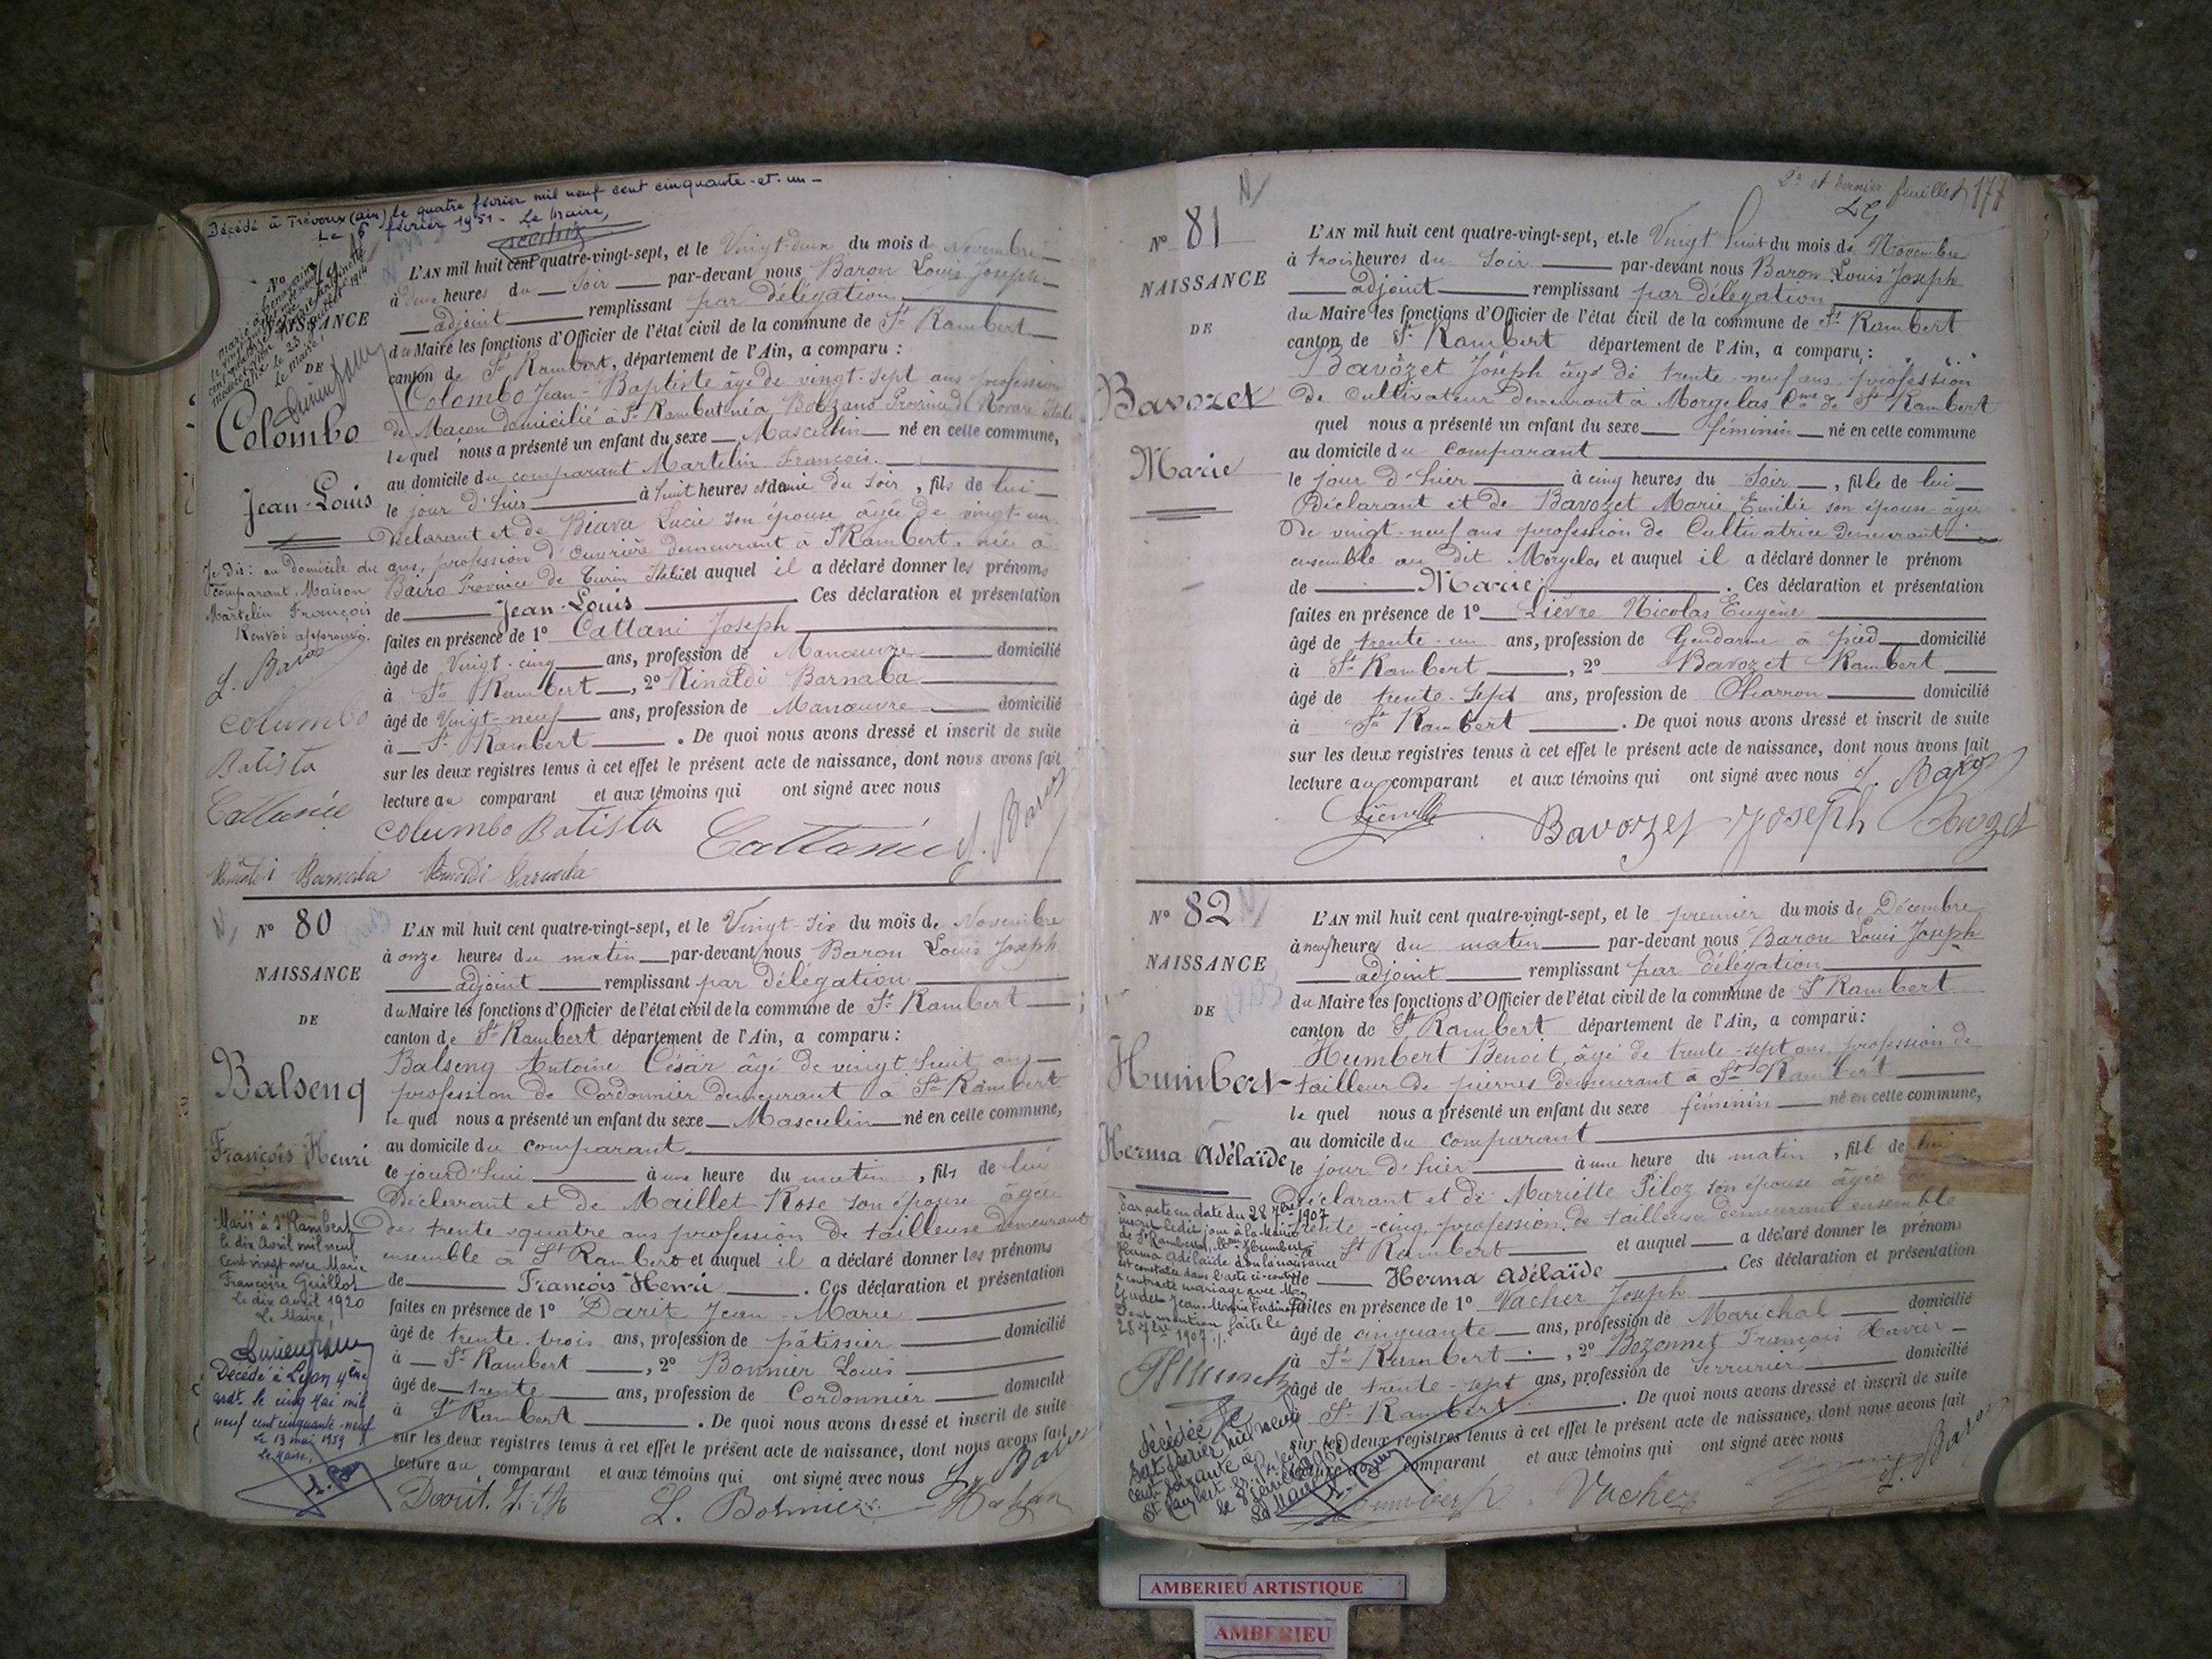 Décédé à Trévoux (ain) le quatre février mil neuf cent cinquante-et-un -
Le 6 février 1951 - Le Maire,
No
NAISSANCE
DE
Colombo
Jean-Louis
Je dis : au domicile du
comparant, Maison
Martelin François
Renvoi approuvé.
L. Baron
Columbo
Batista
Cattanéo
Rinaldi Barnaba
L'AN mil huit cent quatre-vingt-sept, et le Vingt-deux du mois de Novembre
à heures du Soir par-devant nous Baron Louis Joseph
adjoint remplissant par délégation
du Maire les fonctions d'Officier de l'état civil de la commune de St Rambert
canton de St Rambert, département de l'Ain, a comparu :
Colombo Jean-Baptiste âgé de vingt-sept ans profession
de Maçon domicilié à St Rambert né à Province de Novare Italie
lequel nous a présenté un enfant du sexe Masculin né en cette commune,
au domicile du comparant Martelin François.
le jour d'hier à huit heures et demie du Soir, fils de lui
Déclarant et de Lucie son épouse âgée de vingt-un
ans, profession d'ouvrière demeurant à St Rambert, née à
Bairo Province de Turin Italie et auquel il a déclaré donner les prénoms
de Jean-Louis Ces déclaration et présentation
faites en présence de 1º Cattani Joseph
âgé de Vingt-cinq ans, profession de Manœuvre domicilié
à St Rambert, 2º Rinaldi Barnaba
âgé de Vingt-neuf ans, profession de Manœuvre domicilié
à St Rambert. De quoi nous avons dressé et inscrit de suite
sur les deux registres tenus à cet effet le présent acte de naissance, dont nous avons fait
lecture au comparant et aux témoins qui ont signé avec nous
Columbo Batista L. Baron
Rinaldi Barnaba
Nº 80
NAISSANCE
DE
Balseng
François Henri
Marié à St Rambert
le dix Avril mil neuf
cent vingt avec Marie
Françoise Guillot
Le dix avril 1920
Le Maire,
Décédé à Lyon 4ème
ardt. le cinq Mai mil
neuf cent cinquante-neuf
Le 13 mai 1959
Le Maire,
L'AN mil huit cent quatre-vingt-sept, et le Vingt-six du mois de Novembre
à onze heures du matin par-devant nous Baron Louis Joseph
adjoint remplissant par délégation
du Maire les fonctions d'Officier de l'état civil de la commune de St Rambert
canton de St Rambert département de l'Ain, a comparu :
Balseng Antoine César âgé de vingt huit ans
profession de Cordonnier demeurant à St Rambert
lequel nous a présenté un enfant du sexe Masculin né en cette commune,
au domicile du comparant
le jourd'hui à une heure du matin, fils de lui
Déclarant et de Maillet Rose son épouse âgée
de trente quatre ans profession de tailleuse demeurant
ensemble à St Rambert et auquel il a déclaré donner les prénoms
de François Henri. Ces déclaration et présentation
faites en présence de 1º Jean-Marie
âgé de trente-trois ans, profession de pâtissier domicilié
à St Rambert, 2º Bonnier Louis
âgé de trente ans, profession de Cordonnier domicilié
à St Rambert. De quoi nous avons dressé et inscrit de suite
sur les deux registres tenus à cet effet le présent acte de naissance, dont nous avons fait
lecture au comparant et aux témoins qui ont signé avec nous L. Baron
L. Bonnier
2e et dernier feuillet 177
Nº 81
NAISSANCE
DE
Bavozet
Marie
L'AN mil huit cent quatre-vingt-sept, et le Vingt huit du mois de Novembre
à trois heures du Soir par-devant nous Baron Louis Joseph
adjoint remplissant par délégation
du Maire les fonctions d'Officier de l'état civil de la commune de St Rambert
canton de St Rambert département de l'Ain, a comparu :
Bavozet Joseph âgé de trente-neuf ans, profession
de Cultivateur demeurant à Morgelas Cne de St Rambert
quel nous a présenté un enfant du sexe féminin né en cette commune
au domicile du comparant
le jour d'hier à cinq heures du Soir, fille de lui
Déclarant et de Bavozet Marie Emilie son épouse âgée
de vingt-neuf ans profession de Cultivatrice demeurant
ensemble au dit Morgelas et auquel il a déclaré donner le prénom
de Marie. Ces déclaration et présentation
faites en présence de 1º Lièvre Nicolas Eugène
âgé de trente-un ans, profession de Gendarme à pied domicilié
à St Rambert, 2º Bavozet Rambert
âgé de trente-sept ans, profession de Charron domicilié
à St Rambert. De quoi nous avons dressé et inscrit de suite
sur les deux registres tenus à cet effet le présent acte de naissance, dont nous avons fait
lecture au comparant et aux témoins qui ont signé avec nous L. Baron
Bavozet Joseph Bavozet
Nº 82
NAISSANCE
DE
Humbert
Herma Adélaïde
Par acte en date du 28 7bre 1907
Herma Adélaïde dont la naissance
est constatée dans l'acte ci-contre
a contracté mariage avec
Jean-Marie
Dont mention faite le
28 7bre 1907
L'AN mil huit cent quatre-vingt-sept, et le premier du mois de Décembre
à neuf heures du matin par-devant nous Baron Louis Joseph
adjoint remplissant par délégation
du Maire les fonctions d'Officier de l'état civil de la commune de St Rambert
canton de St Rambert département de l'Ain, a comparu :
Humbert Benoit, âgé de trente-sept ans, profession de
tailleur de pierres demeurant à St Rambert
lequel nous a présenté un enfant du sexe féminin né en cette commune,
au domicile du comparant
le jour d'hier à une heure du matin, fille de lui
Déclarant et de Mariette Piloz son épouse âgée
trente-cinq, profession de tailleuse demeurant ensemble
à St Rambert et auquel a déclaré donner les prénoms
de Herma Adélaïde. Ces déclaration et présentation
faites en présence de 1º Vacher Joseph
âgé de cinquante ans, profession de Maréchal domicilié
à St Rambert, 2º Bozonnet François Xavier
âgé de trente-sept ans, profession de Serrurier domicilié
à St Rambert. De quoi nous avons dressé et inscrit de suite
sur les deux registres tenus à cet effet le présent acte de naissance, dont nous avons fait
comparant et aux témoins qui ont signé avec nous
Humbert Vacher L. Baron
AMBERIEU ARTISTIQUE
AMBERIEU